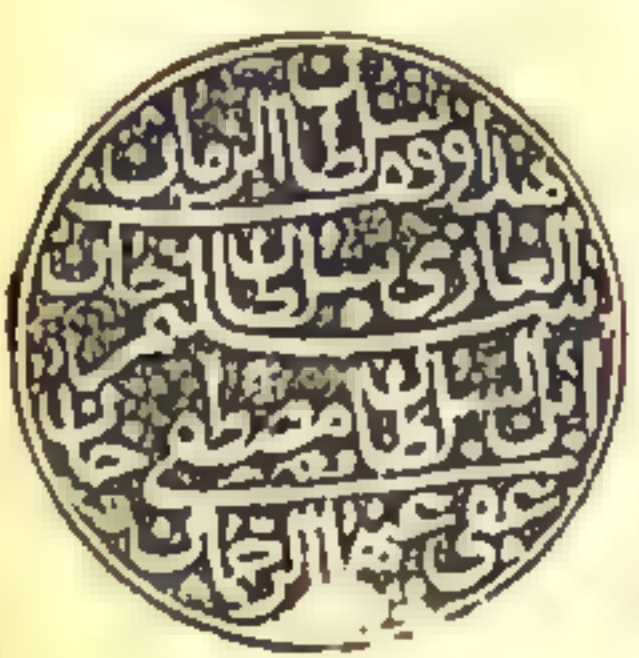 هذا وقف سلطان الزمان
الغازى سلطان سليم خان
بن السلطان مصطفى خان
عفى عنهما الرحمن